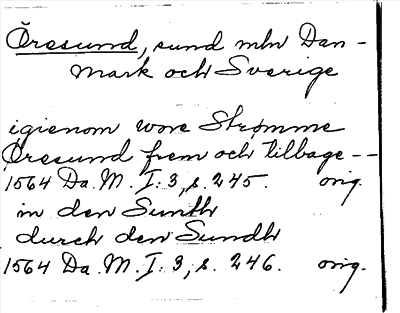 Öresund, sund mln Dan-
mark och Sverige
igienom wore Strømme
Øresund frem och tilbage --
1564 Da. M. I: 3, s. 245. orig.
in den Sunth
durch den Sundh
1564 Da. M. I: 3, s. 246. orig.